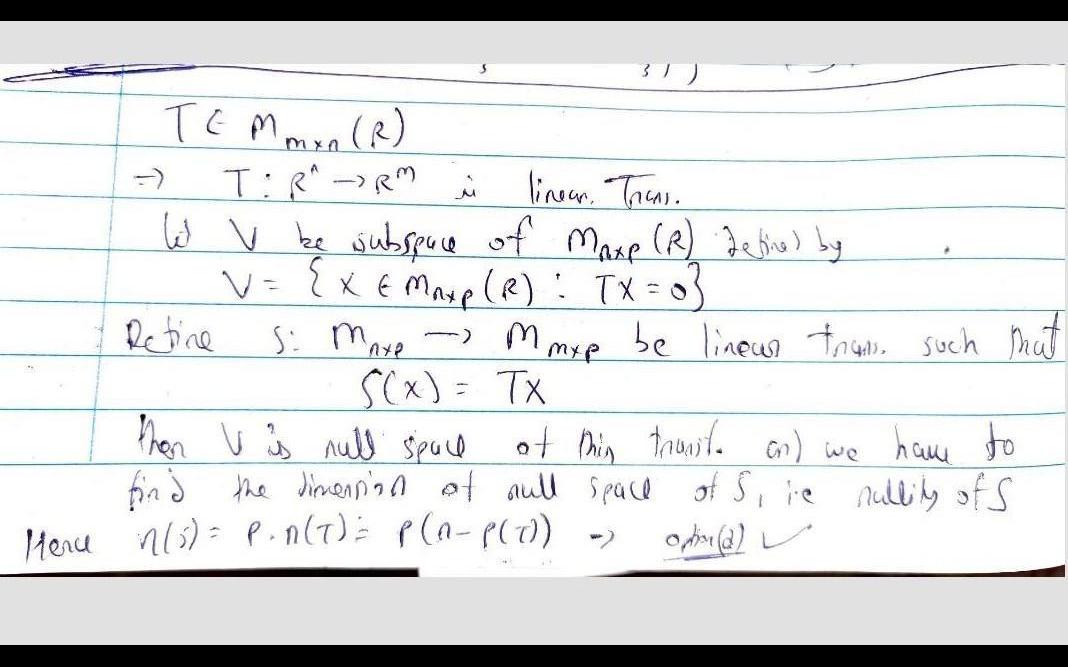 T ∈ M_{m×n}(R)
⇒ T : R^n → R^m is linear. Trans.
let V be subspace of M_{n×p}(R) defined by
V = { X ∈ M_{n×p}(R) : TX = 0}
Define S: M_{n×p} → M_{m×p} be linear trans. such that
S(X) = TX
then V is null space of this transf. and we have to
find the dimension of null space of S, i.e nullity of S
Hence n(S) = P.n(T) = P(n-ρ(T)) → option(d) ✓